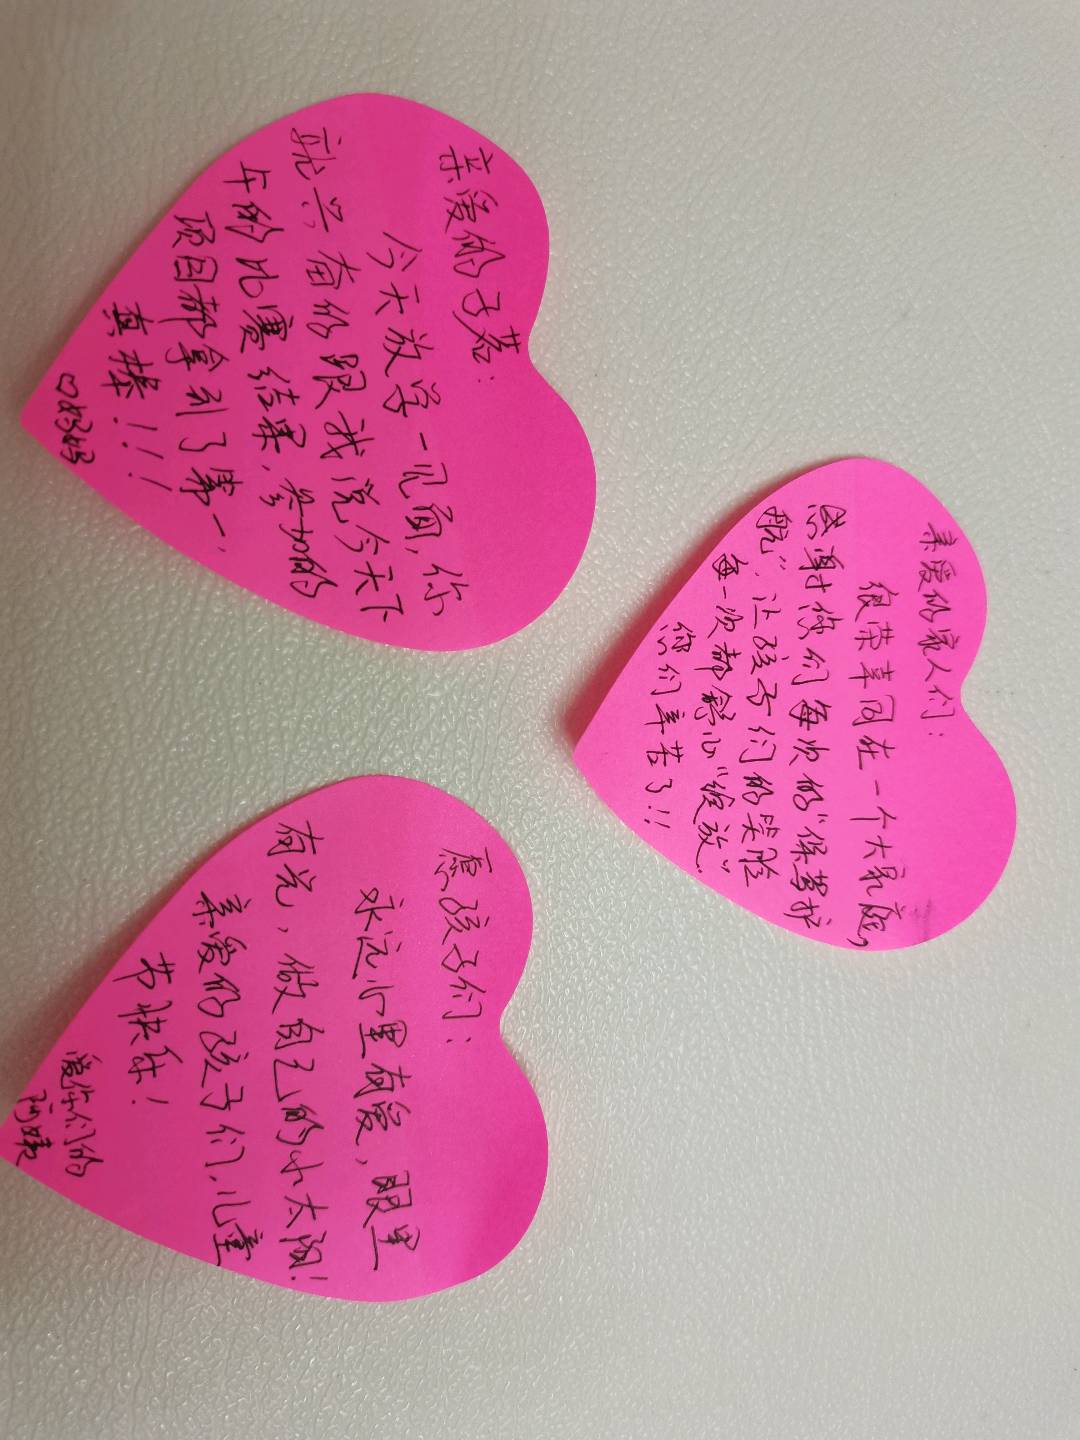 亲爱的子若：
今天放学一见面，你
就兴奋的跟我说今天下
午的比赛结果，参加的
项目都拿到了第一，
真棒！！！
口妈妈
亲爱的家人们：
很荣幸同在一个大家庭，
感谢你们每次的“保驾护
航”，让孩子们的笑脸
每一次都舒心“绽放”.
你们辛苦了！！
愿孩子们：
永远心里有爱，眼里
有光，做自己的小太阳！
亲爱的孩子们，儿童
节快乐！
爱你们的
阿姨